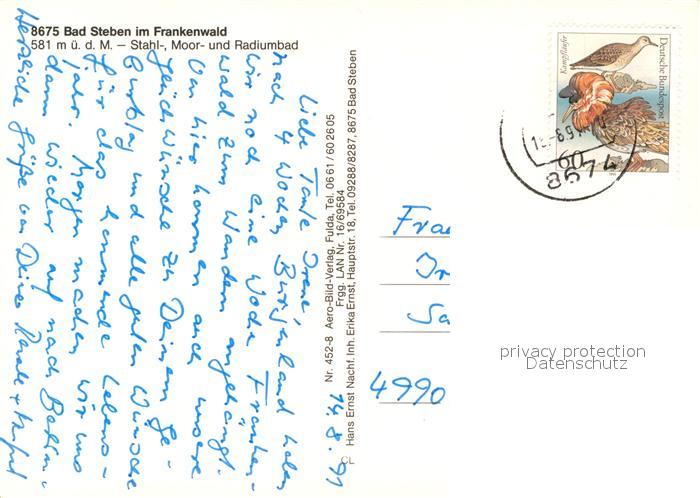 8675 Bad Steben im Frankenwald
581 m ü. d. M. – Stahl-, Moor- und Radiumbad
14.8.91
Liebe Tante Irene!
Nach 4 Wochen Burgenland haben
wir noch eine Woche Franken-
wald zum Wandern angehängt.
Von hier kommen auch unsere
Glückwünsche zu Deinem Ge-
burtstag und alle guten Wünsche
für das kommende Lebens-
jahr. Morgen machen wir uns
dann wieder auf nach Berlin.
Herzliche Grüße von Deiner
Nr. 452-8 Aero-Bild-Verlag, Fulda, Tel. 06 61 / 60 26 05
Frgg. LAN Nr. 16/69584
Hans Ernst Nachf. Inh. Erika Ernst, Hauptstr. 18, Tel. 09288/8287, 8675 Bad Steben
Kampfläufer
Deutsche Bundespost
60
8674
Frau
Ir
Sa
4990
privacy protection
Datenschutz